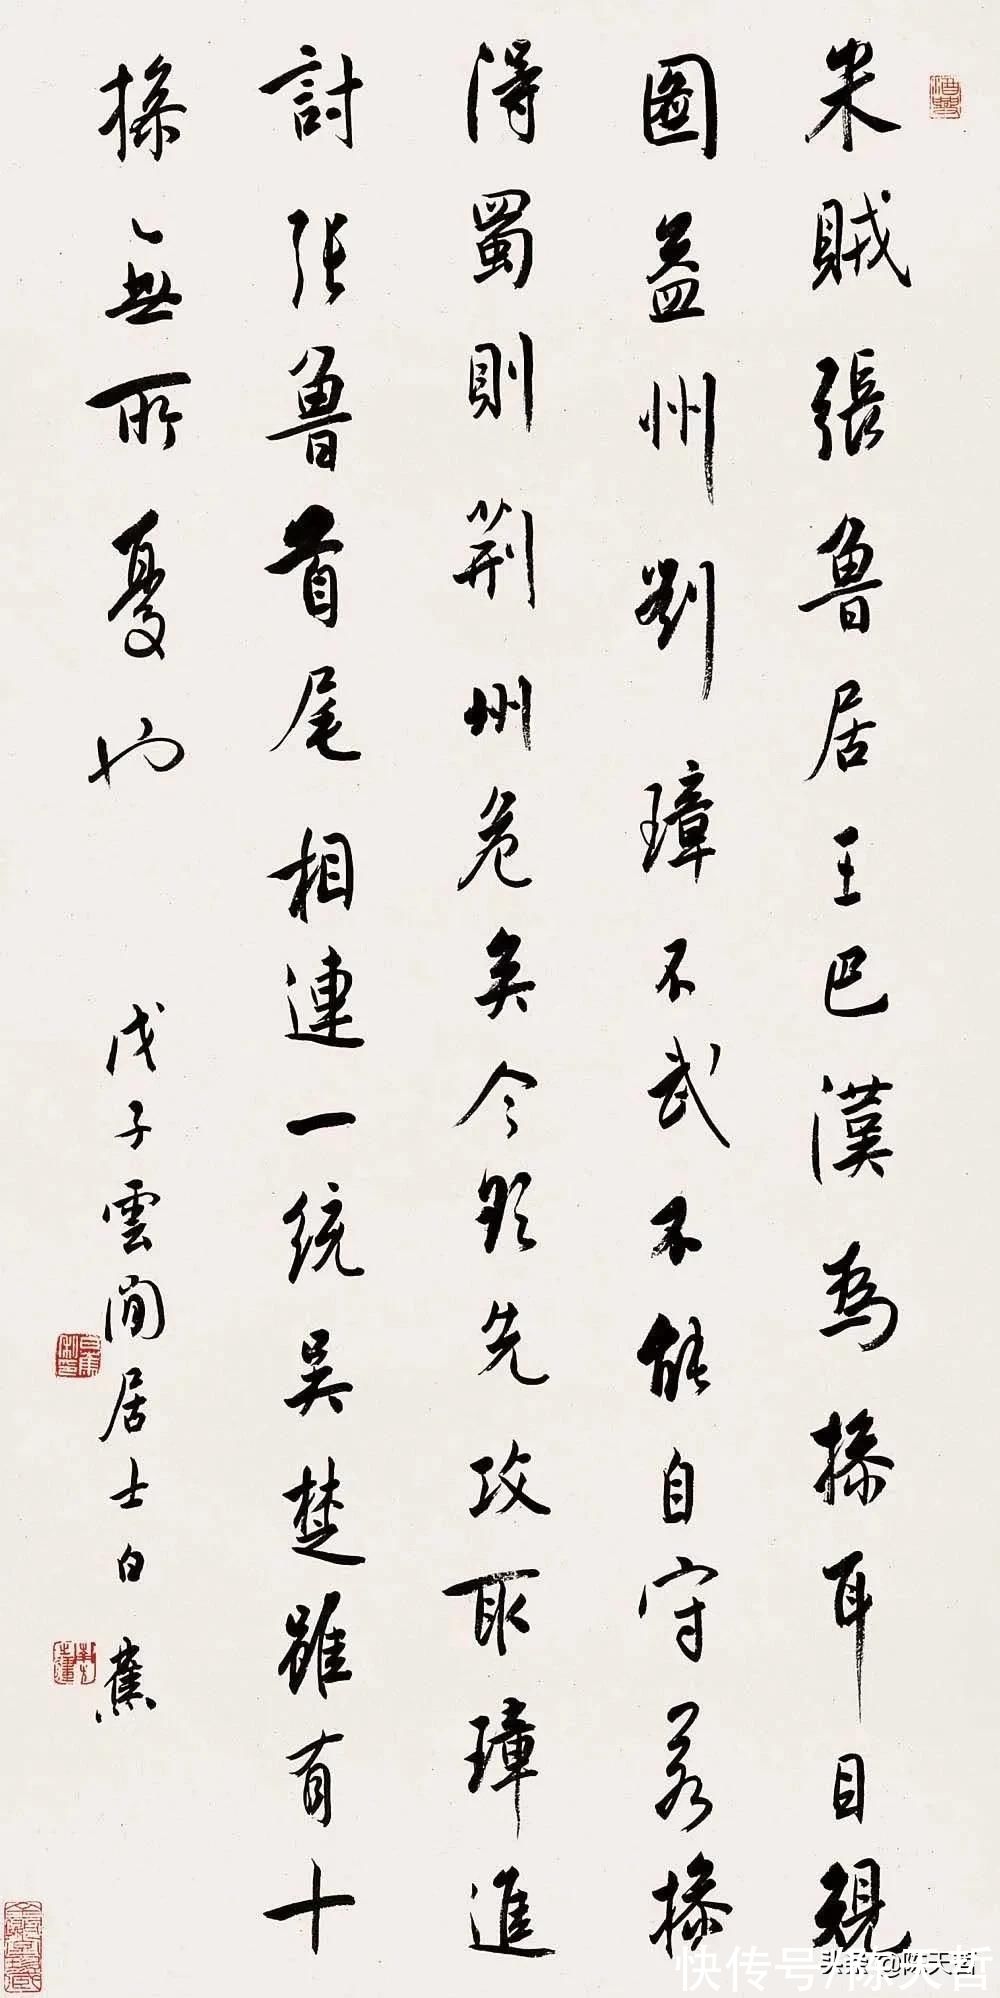 米賊張魯居王巴漢為操耳目規
圖益州劉璋不武不能自守若操
得蜀則荊州危矣今欲先攻取璋進
討張魯首尾相連一統吳楚雖有十
操無所憂也
戊子雲間居士白蕉
快传号/陈天哲
头条@陈天哲